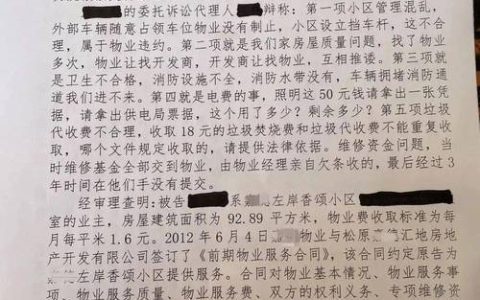 的委托诉讼代理人 辩称：第一项小区管理混乱，
外部车辆随意占领车位物业没有制止，小区设立挡车杆，这不合
理，属于物业违约。第二项就是我们家房屋质量问题，找了物业
多次，物业让找开发商，开发商让找物业，互相推诿。第三项就
是卫生不合格，消防设施不全，消防水带没有，车辆拥堵消防通
道我们进不来。第四就是电费的事，照明这50元钱请拿出一张凭
据，请拿出供电局票据，这个用了多少？剩余多少？第五项垃圾
代收费不合理，收取18元的垃圾焚烧费和垃圾代收费不能重复收
取，哪个文件规定收取的，请提供法律依据。维修资金问题，当
时维修基金全部交到物业，由物业经理亲自欠条收的，最后经过3
年时间在他们手没有提交。
经审理查明：被告 系 左岸香颂小区
室的业主，房屋建筑面积为92.89平方米，物业费收取标准为每
月每平米1.6元。2012年6月4日 物业与松原 汇地房地
产开发有限公司签订了《前期物业服务合同》，该合同约定原告为
左岸香颂小区提供服务。合同对物业基本情况、物业服务事
项、物业服务质量、物业服务费、双方的权利义务、专项维修资